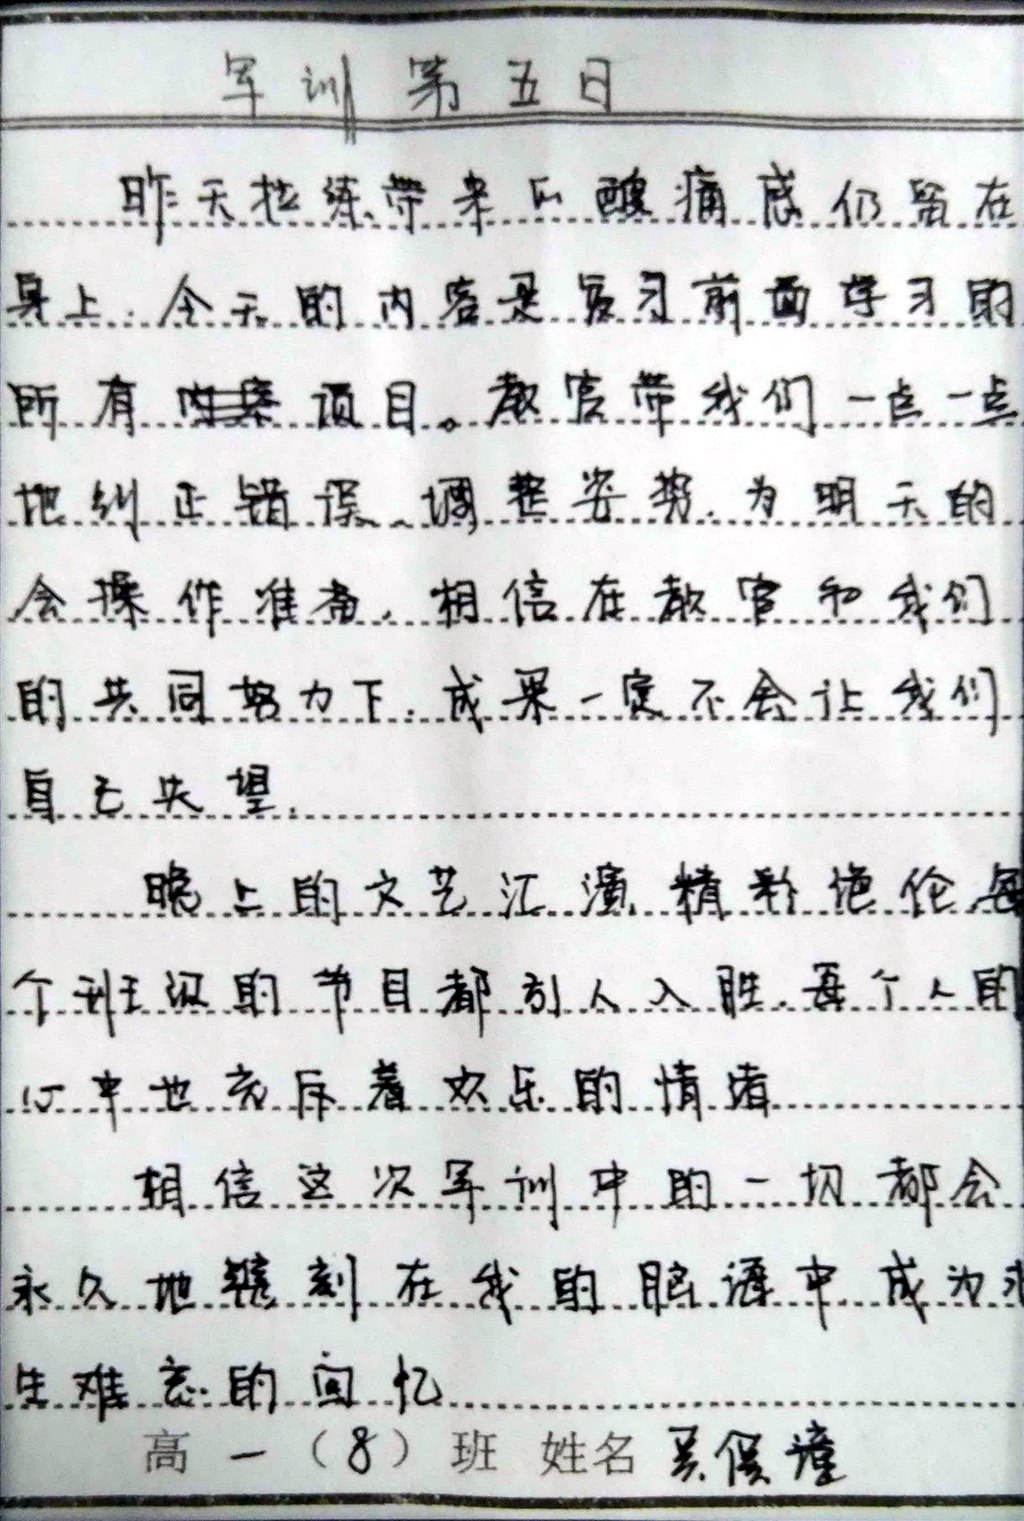 军训第五日
昨天拉练带来的酸痛感仍留在
身上.今天的内容是复习前面学习的
所有项目。教官带我们一点一点
地纠正错误、调整姿势.为明天的
会操作准备.相信在教官和我们
的共同努力下.成果一定不会让我们
自己失望.
晚上的文艺汇演精彩绝伦.每
个班级的节目都引人入胜.每个人的
心中也充斥着欢乐的情绪
相信这次军训中的一切都会
永久地镌刻在我的脑海中成为永
生难忘的回忆
高一(8)班 姓名 吴俣潼